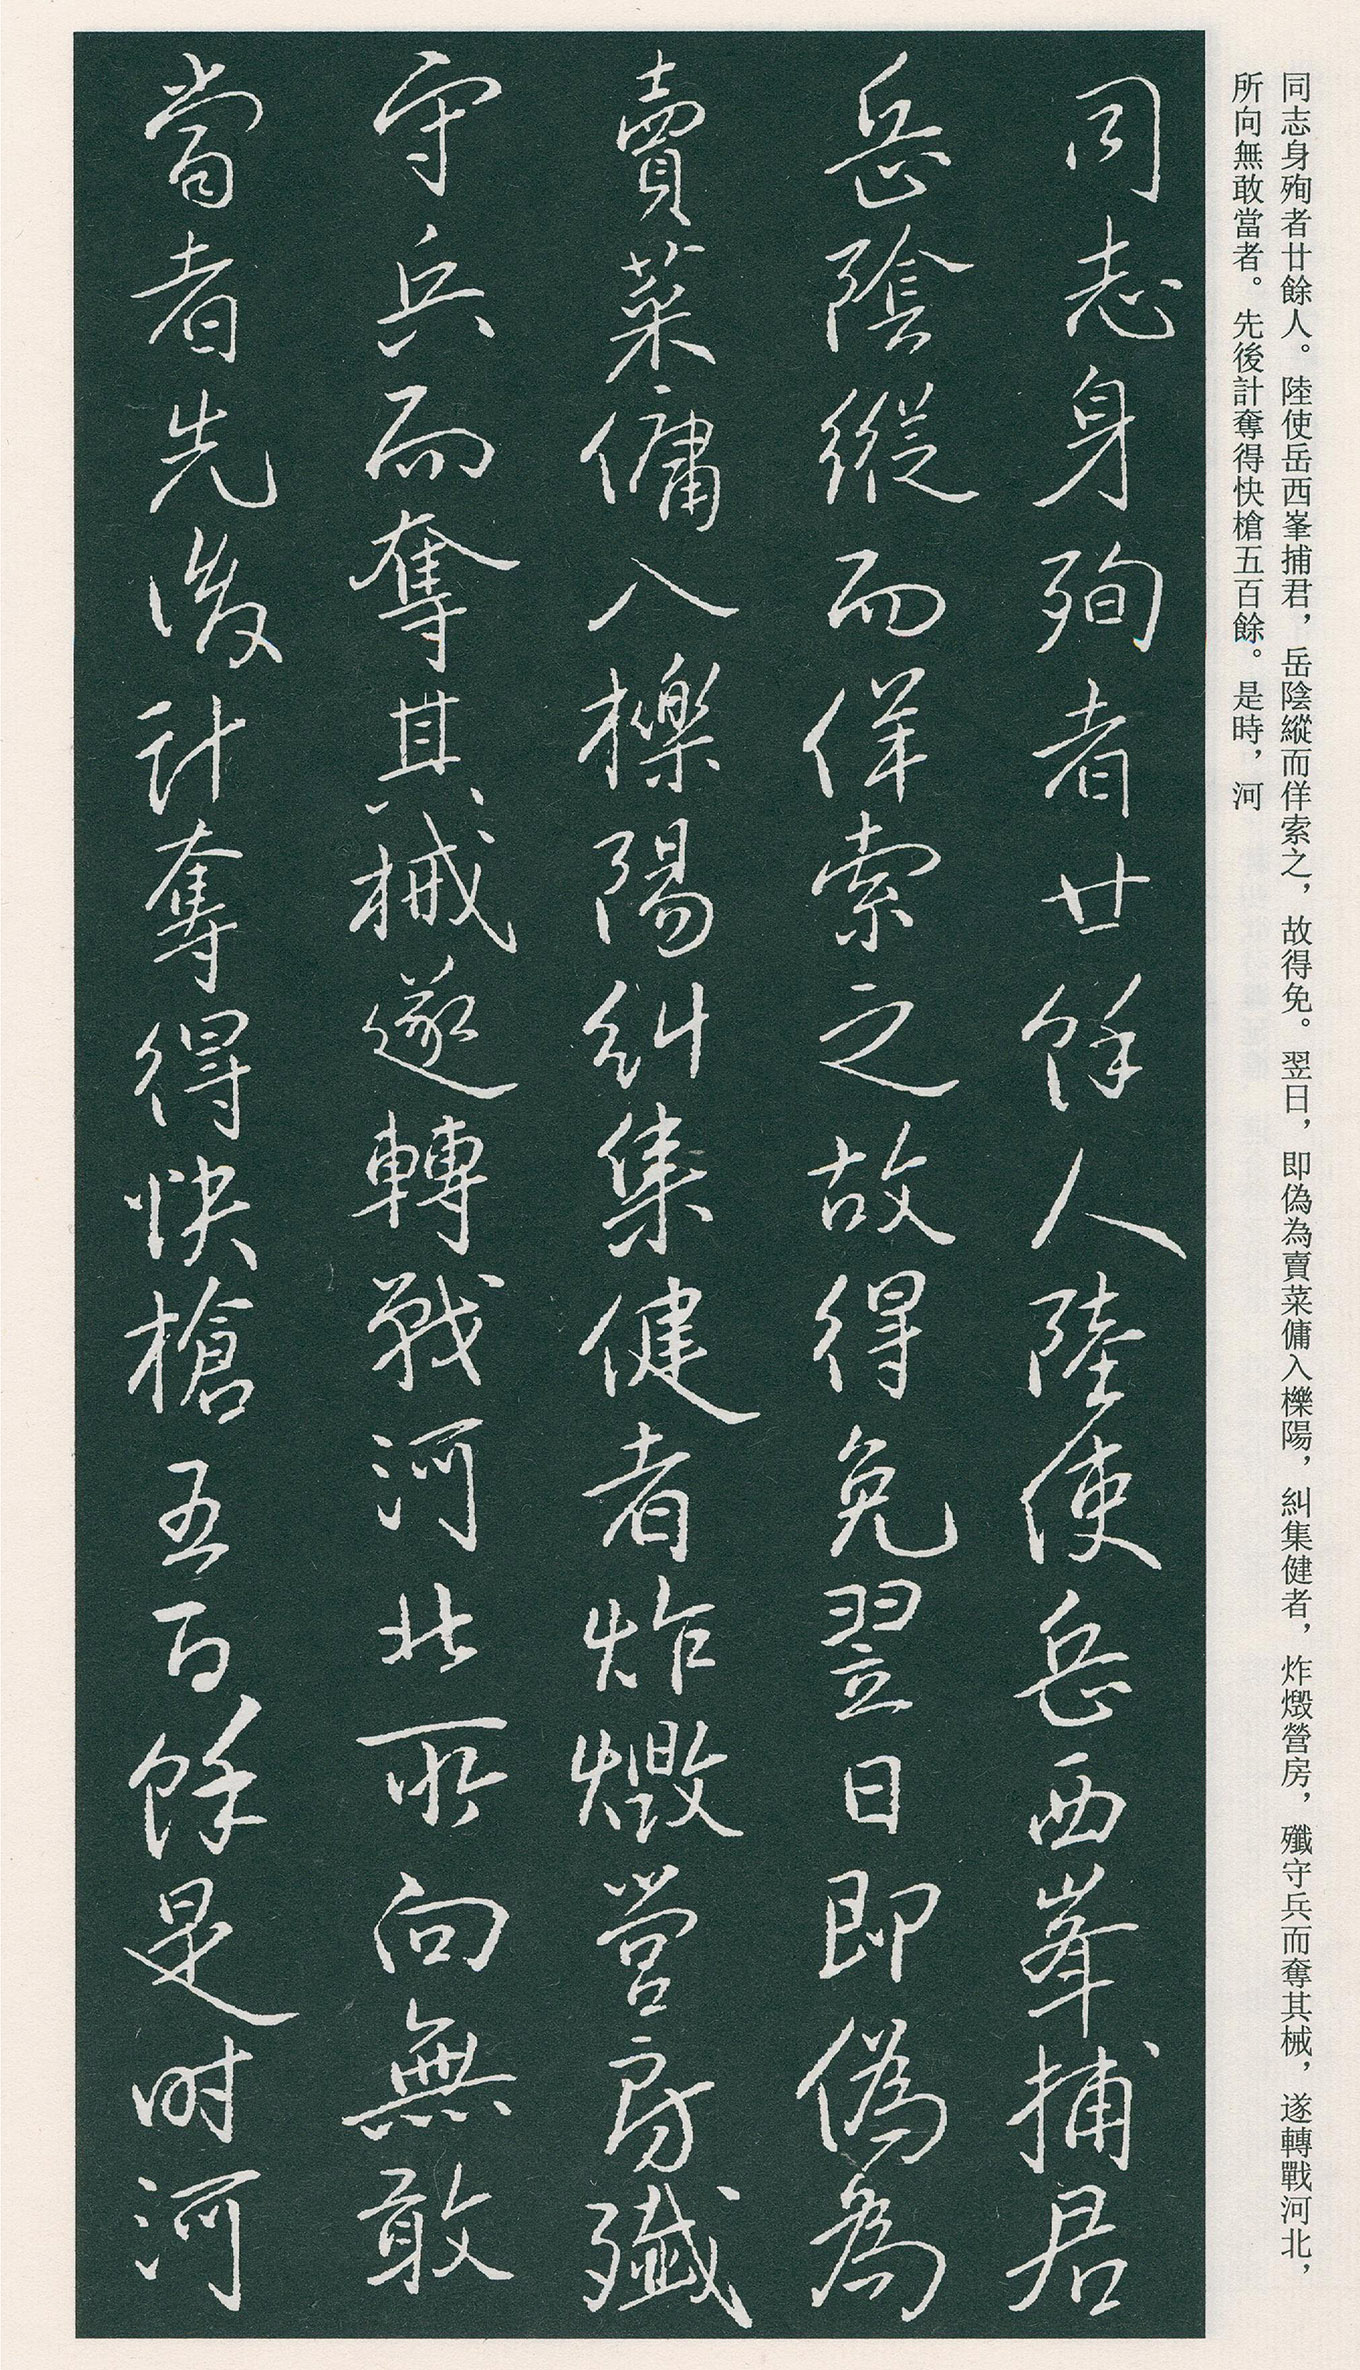 同志身殉者廿餘人。陸使岳西峯捕君，岳陰縱而佯索之，故得免。翌日，即偽為賣菜傭入櫟陽，糾集健者，炸燬營房，殲守兵而奪其械，遂轉戰河北，
所向無敢當者。先後計奪得快槍五百餘。是時，河
同志身殉者廿餘人陸使岳西峯捕君
岳陰縱而佯索之故得免翌日即偽為
賣菜傭入櫟陽糾集健者炸燬營房殲
守兵而奪其械遂轉戰河北所向無敢
當者先後計奪得快槍五百餘是时河